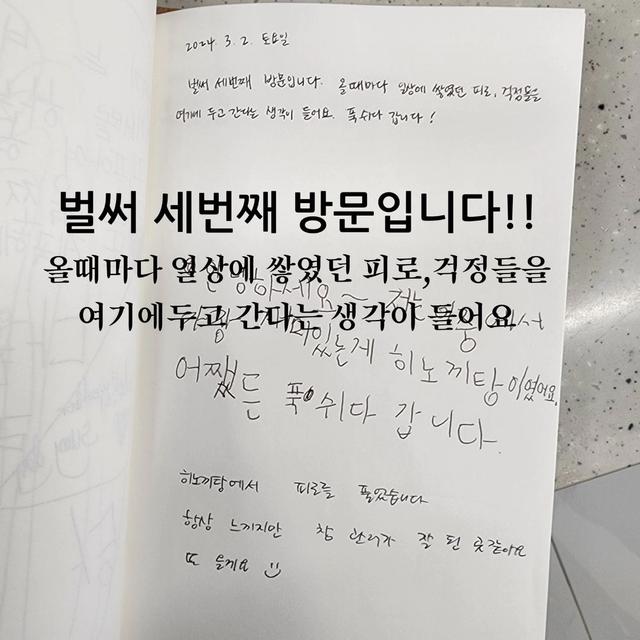 2024. 3. 2. 토요일
벌써 세번째 방문입니다. 올때마다 일상에 쌓였던 피로, 걱정들을
여기에 두고 간다는 생각이 들어요. 푹 쉬다 갑니다!
벌써 세번째 방문입니다!!
올때마다 열상에 쌓였던 피로,걱정들을
여기에두고 간다는 생각이 들어요
있는게 히노끼탕이였어요.
어쨌든 푹 쉬다 갑니다.
히노끼탕에서 피로를 풀었습니다
항상 느끼지만 참 관리가 잘 된 곳 같아요
또 올게요